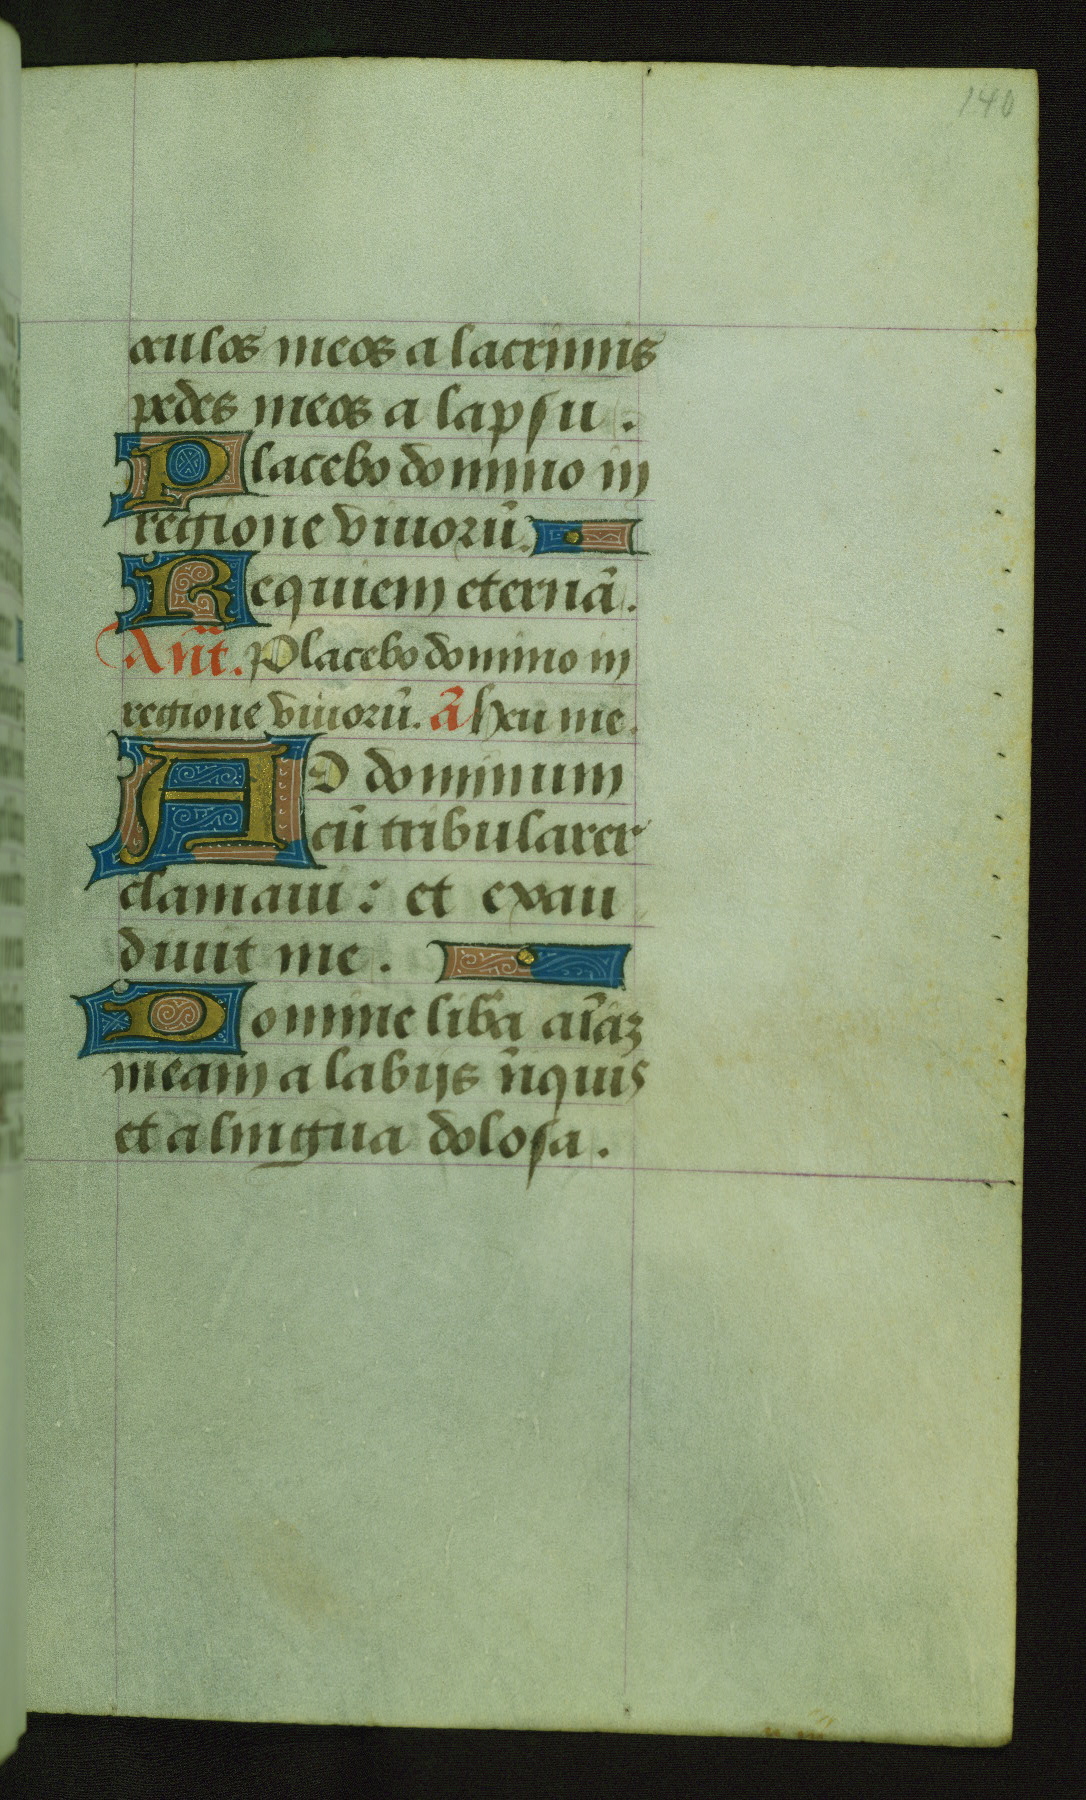 140
oculos meos a lacrimis
pedes meos a lapsu .
Placebo domino in
regione viuorū.
Requiem eternā.
Añt. Placebo domino in
regione viuorū. ā heu me.
AD dominum
cū tribularer
clamaui : et exau
diuit me .
Domine libã aīaȝ
meam a labijs īniquis
et a lingua dolosa .